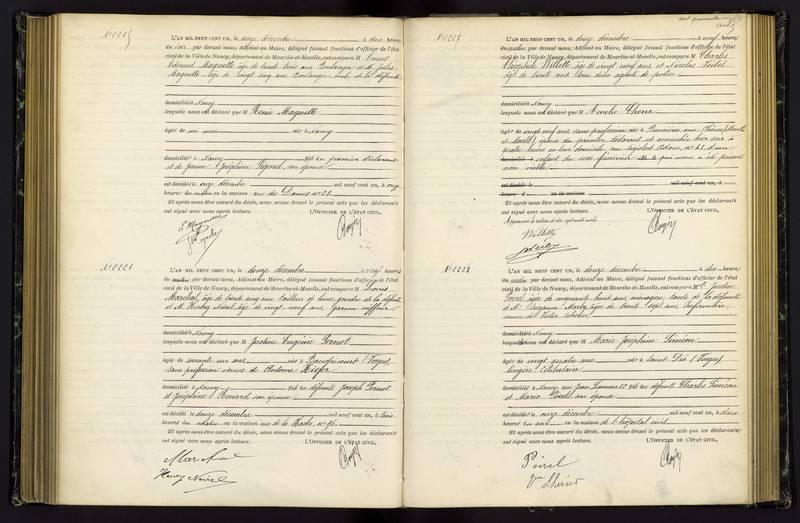 N° 2225
L'AN MIL NEUF CENT UN, le onze décembre à deux heures
du soir par devant nous, Adjoint au Maire, délégué faisant fonctions d'officier de l'état
civil de la Ville de Nancy, département de Meurthe-et-Moselle, ont comparu M Ernest
Edouard Magnette âgé de trente trois ans Boulanger et M. Jules
Magnette âgé de vingt cinq ans Boulanger, oncle de la défunte
domiciliés à Nancy
lesquels nous ont déclaré que M Renée Magnette
âgée de un mois née à Nancy
domiciliée à Nancy fille du premier déclarant
et de Jeanne Joséphine son épouse
est décédée le onze décembre mil neuf cent un, à onze
heures du matin en la maison rue des Dames n° 21.
Et après nous être assuré du décès, nous avons dressé le présent acte que les déclarants
ont signé avec nous après lecture. L'OFFICIER DE L'ÉTAT CIVIL,
N° 2226
L'AN MIL NEUF CENT UN, le douze décembre à neuf heures
du matin par devant nous, Adjoint au Maire, délégué faisant fonctions d'officier de l'état
civil de la Ville de Nancy, département de Meurthe-et-Moselle, ont comparu M Louis
Marchal, âgé de trente cinq ans, tailleur de limes, gendre de la défunte
et M. Henry Noirel âgé de vingt neuf ans, Garçon coiffeur
domiciliés à Nancy
lesquels nous ont déclaré que M Justine Eugénie Pernot
âgée de soixante un ans née à Baudricourt (Vosges)
sans profession veuve de Antoine Kiefer
domiciliée à Nancy fille des défunts Joseph Pernot
et Joséphine Renard, son épouse
est décédée le douze décembre mil neuf cent un, à trois
heures du matin en la maison rue de la Hache, n° 96.
Et après nous être assuré du décès, nous avons dressé le présent acte que les déclarants
ont signé avec nous après lecture. L'OFFICIER DE L'ÉTAT CIVIL,
Marchal
Henry Noirel
N° 2227
L'AN MIL NEUF CENT UN, le douze décembre à neuf heures
du matin par devant nous, Adjoint au Maire, délégué faisant fonctions d'officier de l'état
civil de la Ville de Nancy, département de Meurthe-et-Moselle, ont comparu M Charles
Willette âgé de vingt neuf ans et Nicolas
âgé de trente ans tous deux agents de police
domiciliés à Nancy
lesquels nous ont déclaré que M Amélie
âgée de vingt neuf ans sans profession née à
et Moselle) épouse du premier déclarant est accouchée hier soir à
quatre heures en leur domicile, rue Sigisbert Adam, n° 41. d'un
enfant du sexe féminin qui nous a été présenté
non viable
est décédé le mil neuf cent un, à
heures d en la maison
Et après nous être assuré du décès, nous avons dressé le présent acte que les déclarants
ont signé avec nous après lecture. L'OFFICIER DE L'ÉTAT CIVIL,
Willette
N° 2228
L'AN MIL NEUF CENT UN, le douze décembre à dix heures
du matin par devant nous, Adjoint au Maire, délégué faisant fonctions d'officier de l'état
civil de la Ville de Nancy, département de Meurthe-et-Moselle, ont comparu M
Poirel, âgée de cinquante huit ans, ménagère, tante de la défunte
et Suzanne âgée de trente sept ans, Infirmière
veuve de Victor
domiciliés à Nancy
lesquelles nous ont déclaré que M Marie Joséphine Simson
âgée de vingt quatre ans née à Saint Dié (Vosges)
lingère Célibataire
domiciliée à Nancy, rue Jean Lamour 22 fille des défunts Charles Simson
et Marie son épouse
est décédée le onze décembre mil neuf cent un, à deux
heures du soir en la maison de l'hôpital civil
Et après nous être assuré du décès, nous avons dressé le présent acte que les déclarants
ont signé avec nous après lecture. L'OFFICIER DE L'ÉTAT CIVIL,
Poirel